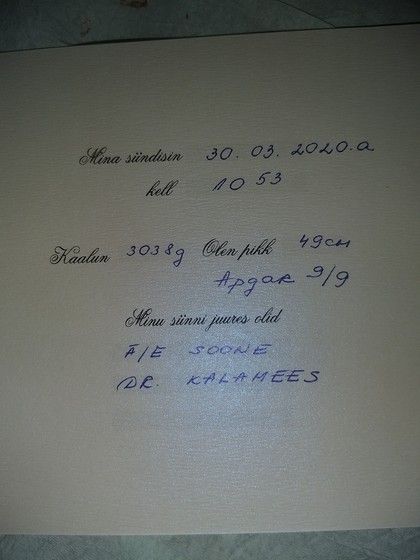 Mina sündisin 30.03.2020.a
kell 10 53
Kaalun 3038g Olen pikk 49см
Апгак 9/9
Minu sünni juures olid
Ä/E SOONE
DR. KALAMEES